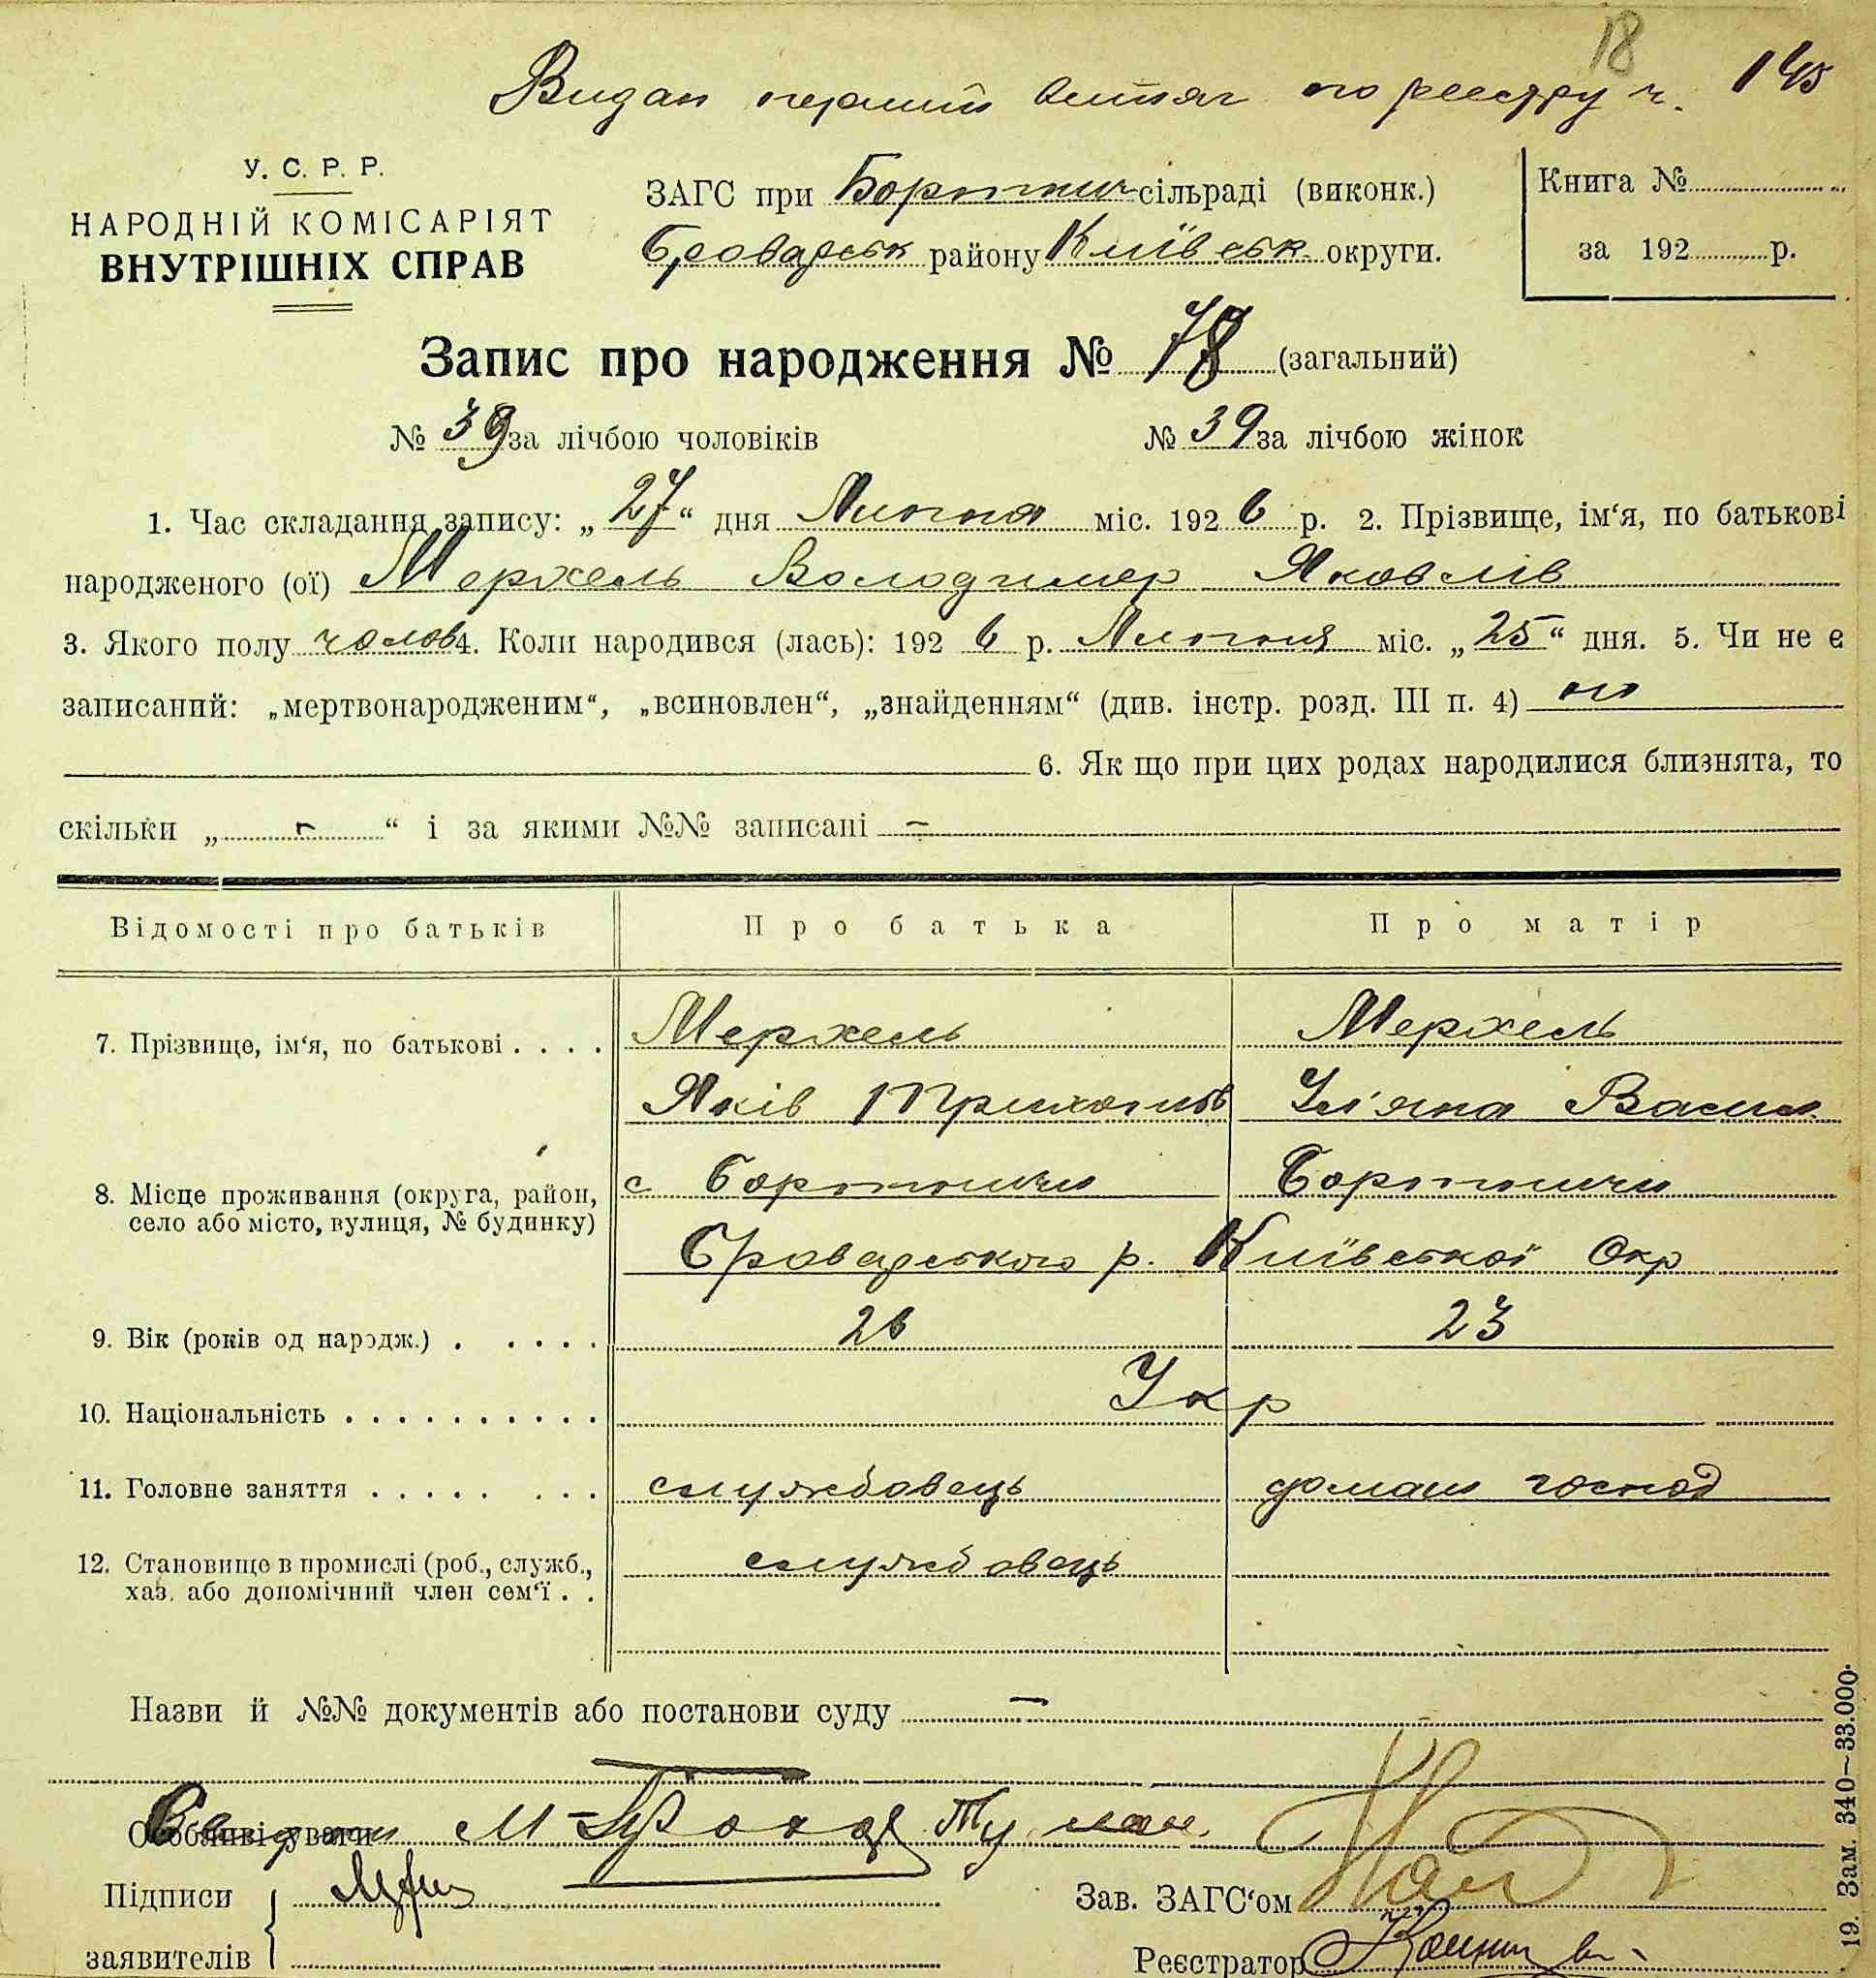 18
Видан перший витяг по реєстру ч. 145
У. С. Р. Р.
НАРОДНІЙ КОМІСАРІЯТ
ВНУТРІШНІХ СПРАВ
ЗАГС при Бортнич сільраді (виконк.)
Броварськ району Київськ округи.
Книга №
за 192 р.
Запис про народження № 78 (загальний)
№ 39 за лічбою чоловіків № 39 за лічбою жінок
1. Час складання запису: „27“ дня Липня міс. 1926 р. 2. Прізвище, ім‘я, по батькові
народженого (ої) Мержель Володимер Яковлів
3. Якого полу чолов 4. Коли народився (лась): 1926 р. Липня міс. „25“ дня. 5. Чи не є
записаний: „мертвонародженим“, „всиновлен“, „знайденням“ (див. інстр. розд. III п. 4) ні
6. Як що при цих родах народилися близнята, то
скільки „ - “ і за якими №№ записані -
Відомості про батьків Про батька Про матір
7. Прізвище, ім‘я, по батькові . . . . Мержель Мержель
Яків Ул‘яна Васил
8. Місце проживання (округа, район, с Бортничи Бортничи
село або місто, вулиця, № будинку)
Броварського р. Київської Окр
9. Вік (років од народж.) . . . . . 26 23
10. Національність . . . . . . . . . . Укр
11. Головне заняття . . . . . . . . службовець домаш господ
12. Становище в промислі (роб., служб., службовець
хаз. або допомічний член сем‘ї . .
Назви й №№ документів або постанови суду —
Особливі уваги
Підписи
заявителів
Зав. ЗАГС‘ом
Реєстратор
19. Зам. 340—33.000.